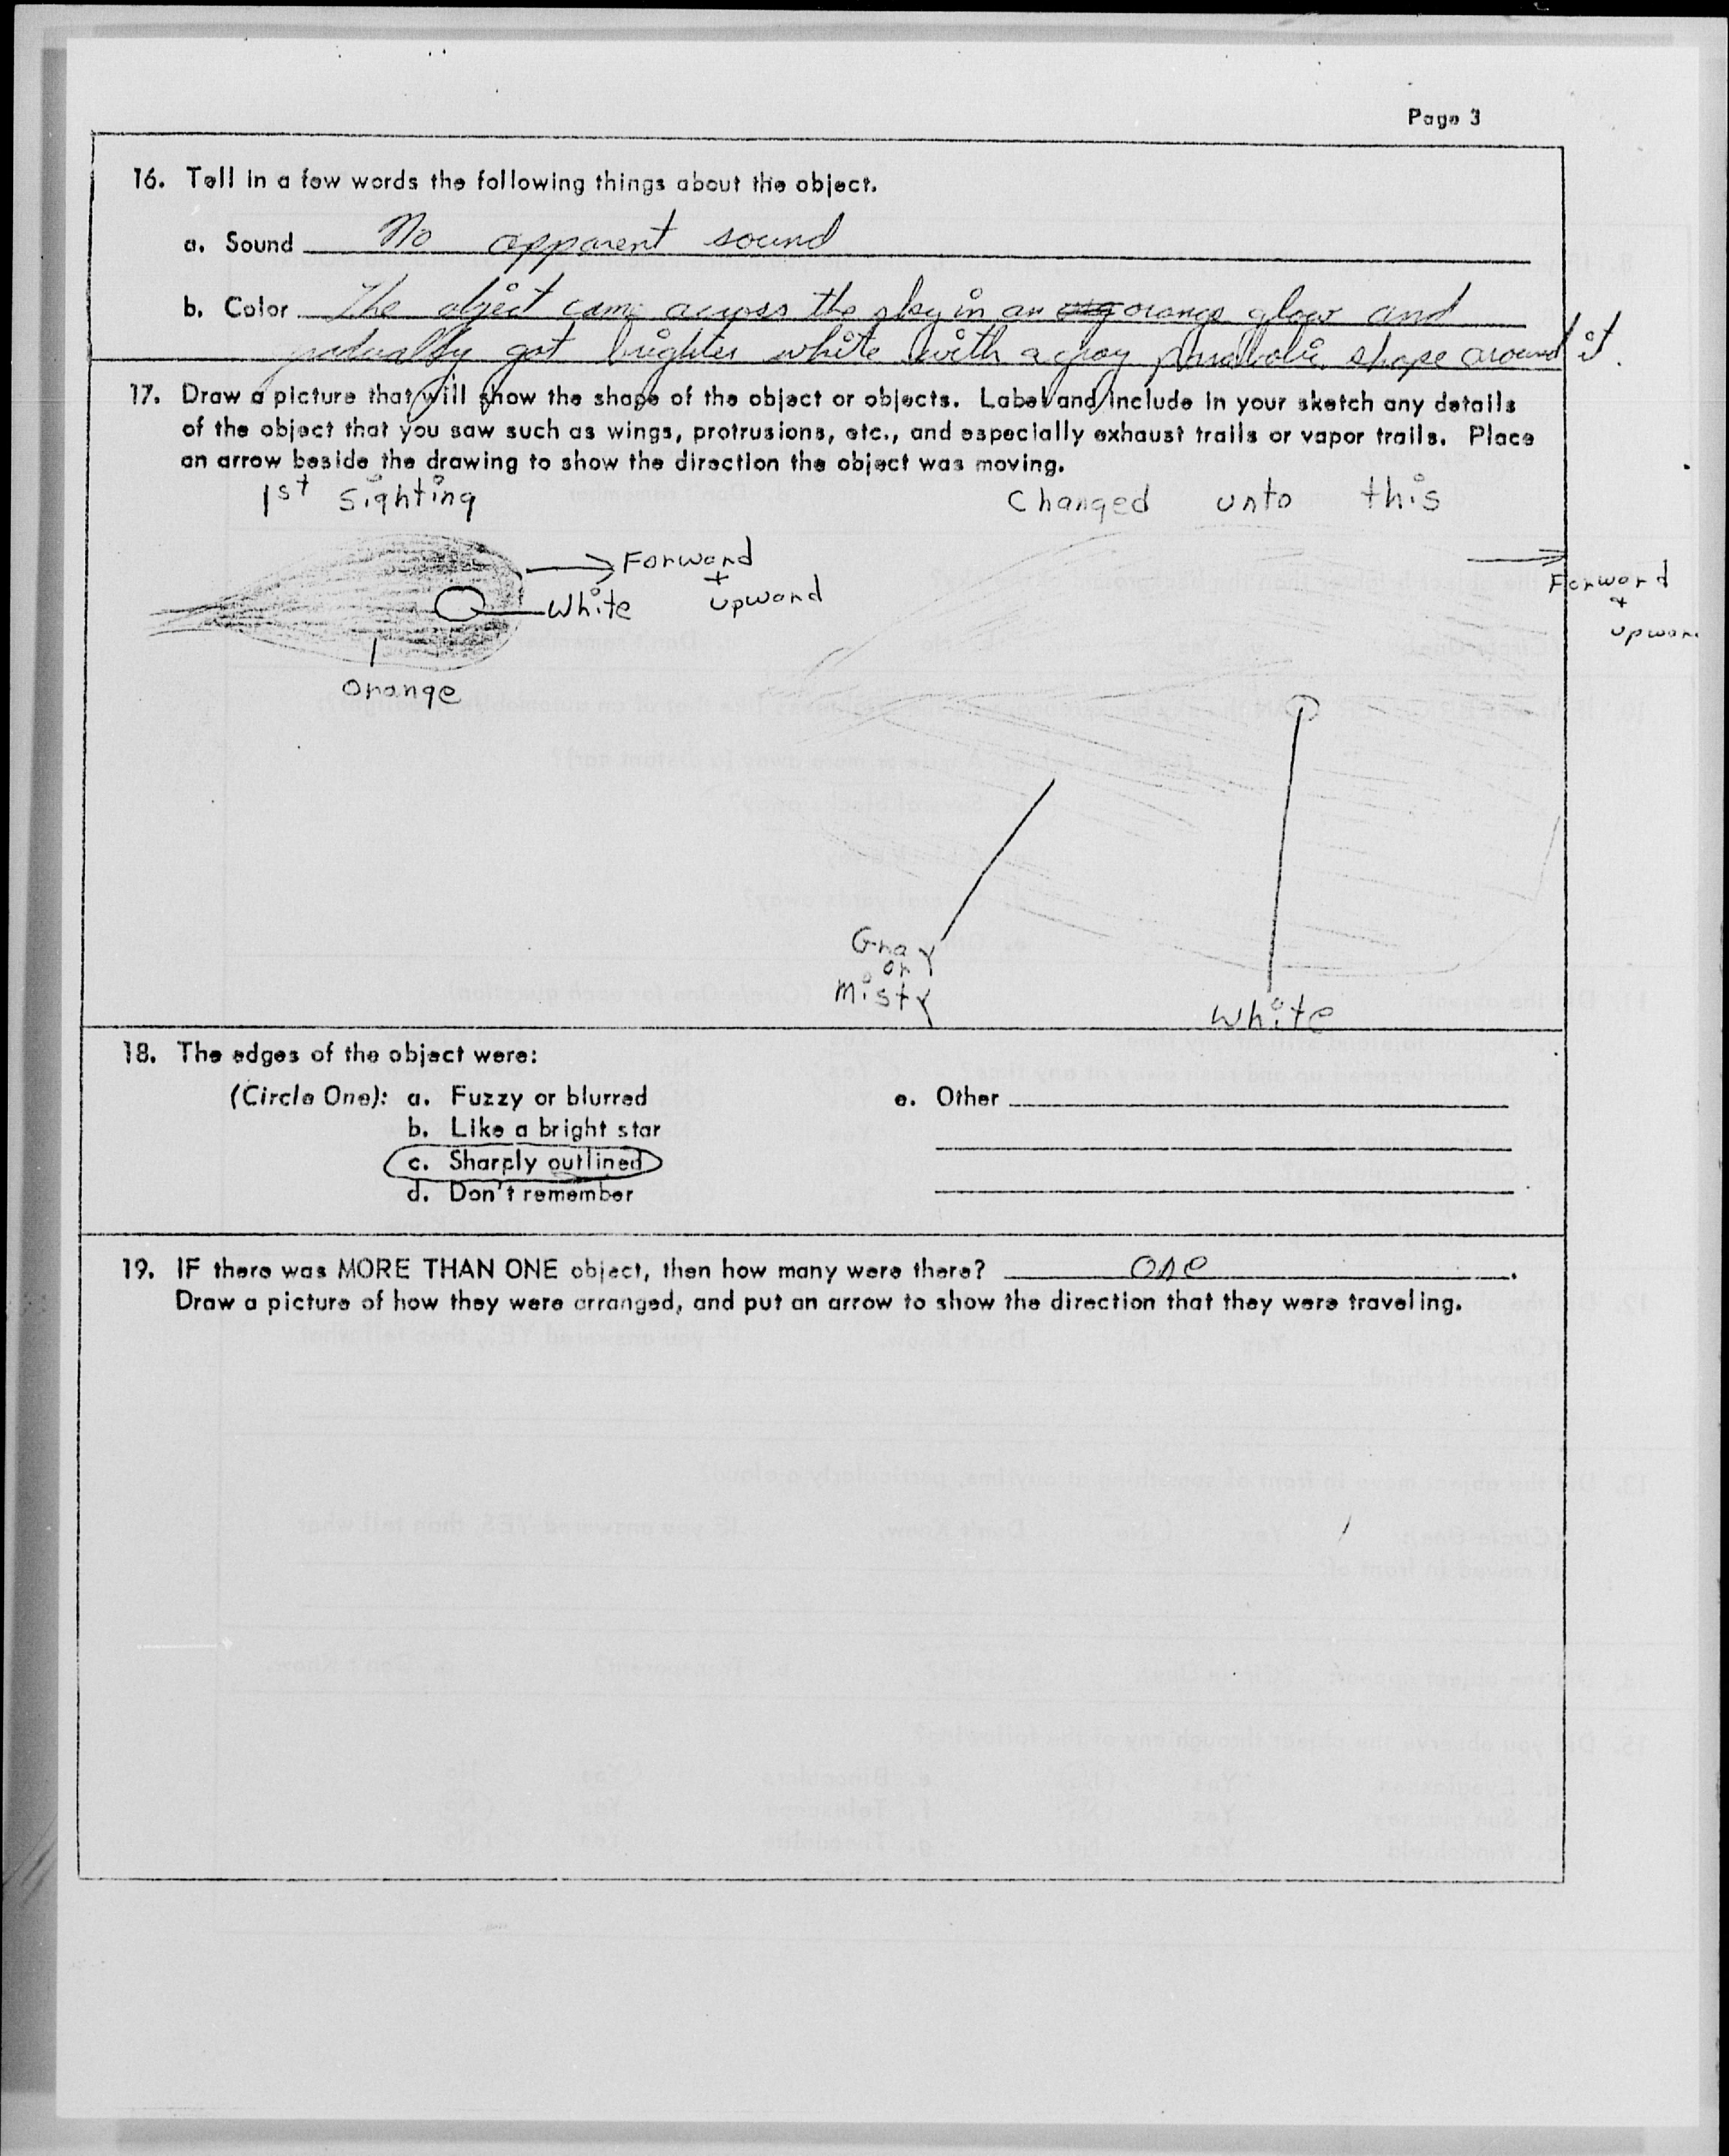 Page 3
16. Tell in a few words the following things about the object.
a. Sound No apparent sound
b. Color The object came across the sky in an orange glow and
gradually got brighter white with a gray parabolic shape around it.
17. Draw a picture that will show the shape of the object or objects. Label and include in your sketch any details
of the object that you saw such as wings, protrusions, etc., and especially exhaust trails or vapor trails. Place
an arrow beside the drawing to show the direction the object was moving.
1st Sighting
Changed unto this
Forward
+
upward
White
Orange
Forward
+
upwar
Gray
or
Misty
White
18. The edges of the object were:
(Circle One): a. Fuzzy or blurred
e. Other
b. Like a bright star
c. Sharply outlined
d. Don't remember
19. IF there was MORE THAN ONE object, then how many were there? one.
Draw a picture of how they were arranged, and put an arrow to show the direction that they were traveling.